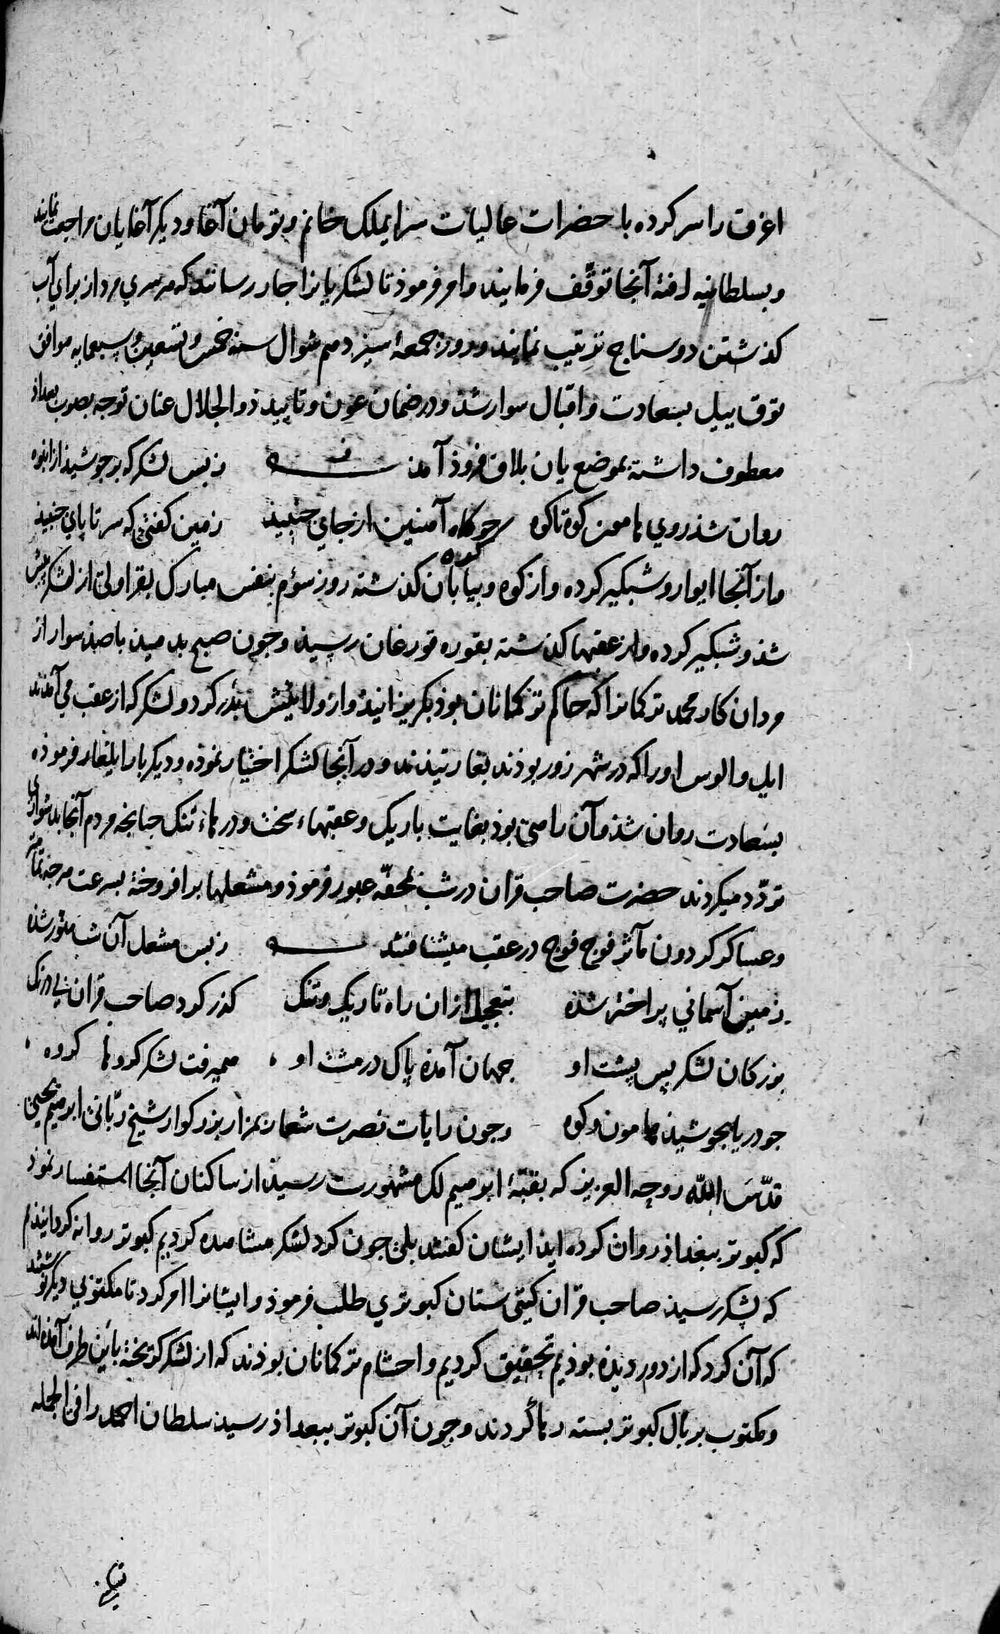 اغرق را سر کرده با حضرات عالیات سرایملک خانم و تومان آغا و دیکر آغایان مراجعت نمایند
و بسلطانیه رفته آنجا توقّف فرمایند و امر فرموذ تا لشکریانرا جار رسانند که هر سری مردار برای آب
کذشتن دو سناج ترتیب نمایند و روز جمعهٔ سیزدهم شوال سنه خمس و تسعین و سبعمایه موافق
توق ییل بسعادت و اقبال سوار شذ و در ضمان عون و تایید ذو الجلال عنان توجه بصوب بغداذ
معطوف داشته بموضع یان بلاق فروذ آمد زبس لشکر که بر جوشیذ از انبوه
روان شذ روی هامون کوه تا کوه جو کاه آهنین از جای جنبید زمین کفتی که سر تا پای جنبید
و از آنجا ایوار و شبکیر کرده و از کوه و بیابان کذشته روز سؤم بنفس مبارک بقراولی از لشکر پیش
شذ و شبکیر کرده و از عقبها کذشته بقوره قورغان رسیذ و جون صبح بدمید با صذ سوار از
مردان کار محمد ترکمانرا که حاکم ترکمانان بوذ بکریزانیذ و از ولایتش بدر کرد و لشکر که از عقب می آمذند
ایل و الوس او را که در شهر زور بوذند بغارتیذند و در آنجا لشکر اختیار نموذه و دیکر باره ایلغار فرموذه
بسعادت روان شذ و آن راهی بوذ بغایت باریک و عقبهاء سخت و درهاء تنک جنانجه مردم آنجا بدشواری
تردّد میکردند حضرت صاحب قران در شب بمحفّه عبور فرموذ و مشعلها بر افروخته بسرعت هرجه تمامتر
و عساکر کردون مآثر فوج فوج در عقب میشتافتند زبس مشعل آن شب منوّر شذه
زمین آسمانی پر اختر شذه بتعجیل ازان راه تاریک و تنک کذر کرد صاحب قران بی درنک
بزرکان لشکر پس پشت او جهان آمذه پاک در مشت او همیرفت لشکر کروها کروه
جو دریا بجوشیذ هامون و کوه و جون رایات نصرت شعار بمزار بزرکوار شیخ ربّانی ابرهیم یحیی
قدّس اللّه روحه العزیز که بقبّهٔ ابرهیم لک مشهورست رسیذ از ساکنان آنجا استفسار نموذ
که کبوتر ببغداذ روان کرده ایذ ایشان کفتند بلی جون کرد لشکر مشاهده کردیم کبوتر روانه کردانیذیم
که لشکر رسیذ صاحب قران کیتی ستان کبوتری طلب فرموذ و ایشانرا امر کرد تا مکتوبی دیکر نوشتند
که آن کرد که از دور دیذه بوذیم تحقیق کردیم و احشام ترکمانان بوذند که از لشکر کریخته باین طرف آمذه اند
و مکتوب بر بال کبوتر بسته رها کردند و جون آن کبوتر ببغداذ رسیذ سلطان احمد را فی الجمله